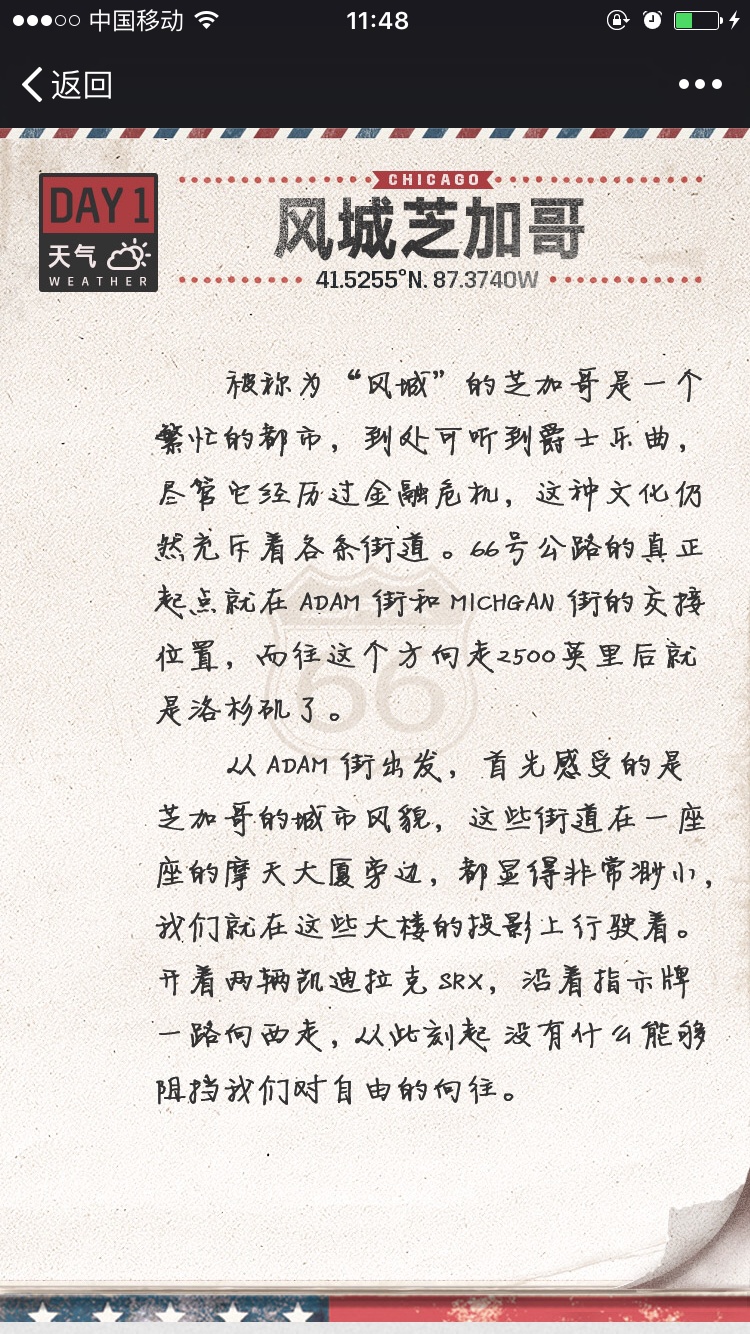 中国移动 11:48
返回
DAY 1
天气
WEATHER
CHICAGO
风城芝加哥
41.5255°N. 87.3740W
被称为“风城”的芝加哥是一个
繁忙的都市，到处可听到爵士乐曲，
尽管它经历过金融危机，这种文化仍
然充斥着各条街道。66号公路的真正
起点就在 ADAM 街和 MICHGAN 街的交接
位置，而往这个方向走2500英里后就
是洛杉矶了。
66
从 ADAM 街出发，首先感受的是
芝加哥的城市风貌，这些街道在一座
座的摩天大厦旁边，都显得非常渺小，
我们就在这些大楼的投影上行驶着。
开着两辆凯迪拉克 SRX，沿着指示牌
一路向西走，从此刻起 没有什么能够
阻挡我们对自由的向往。